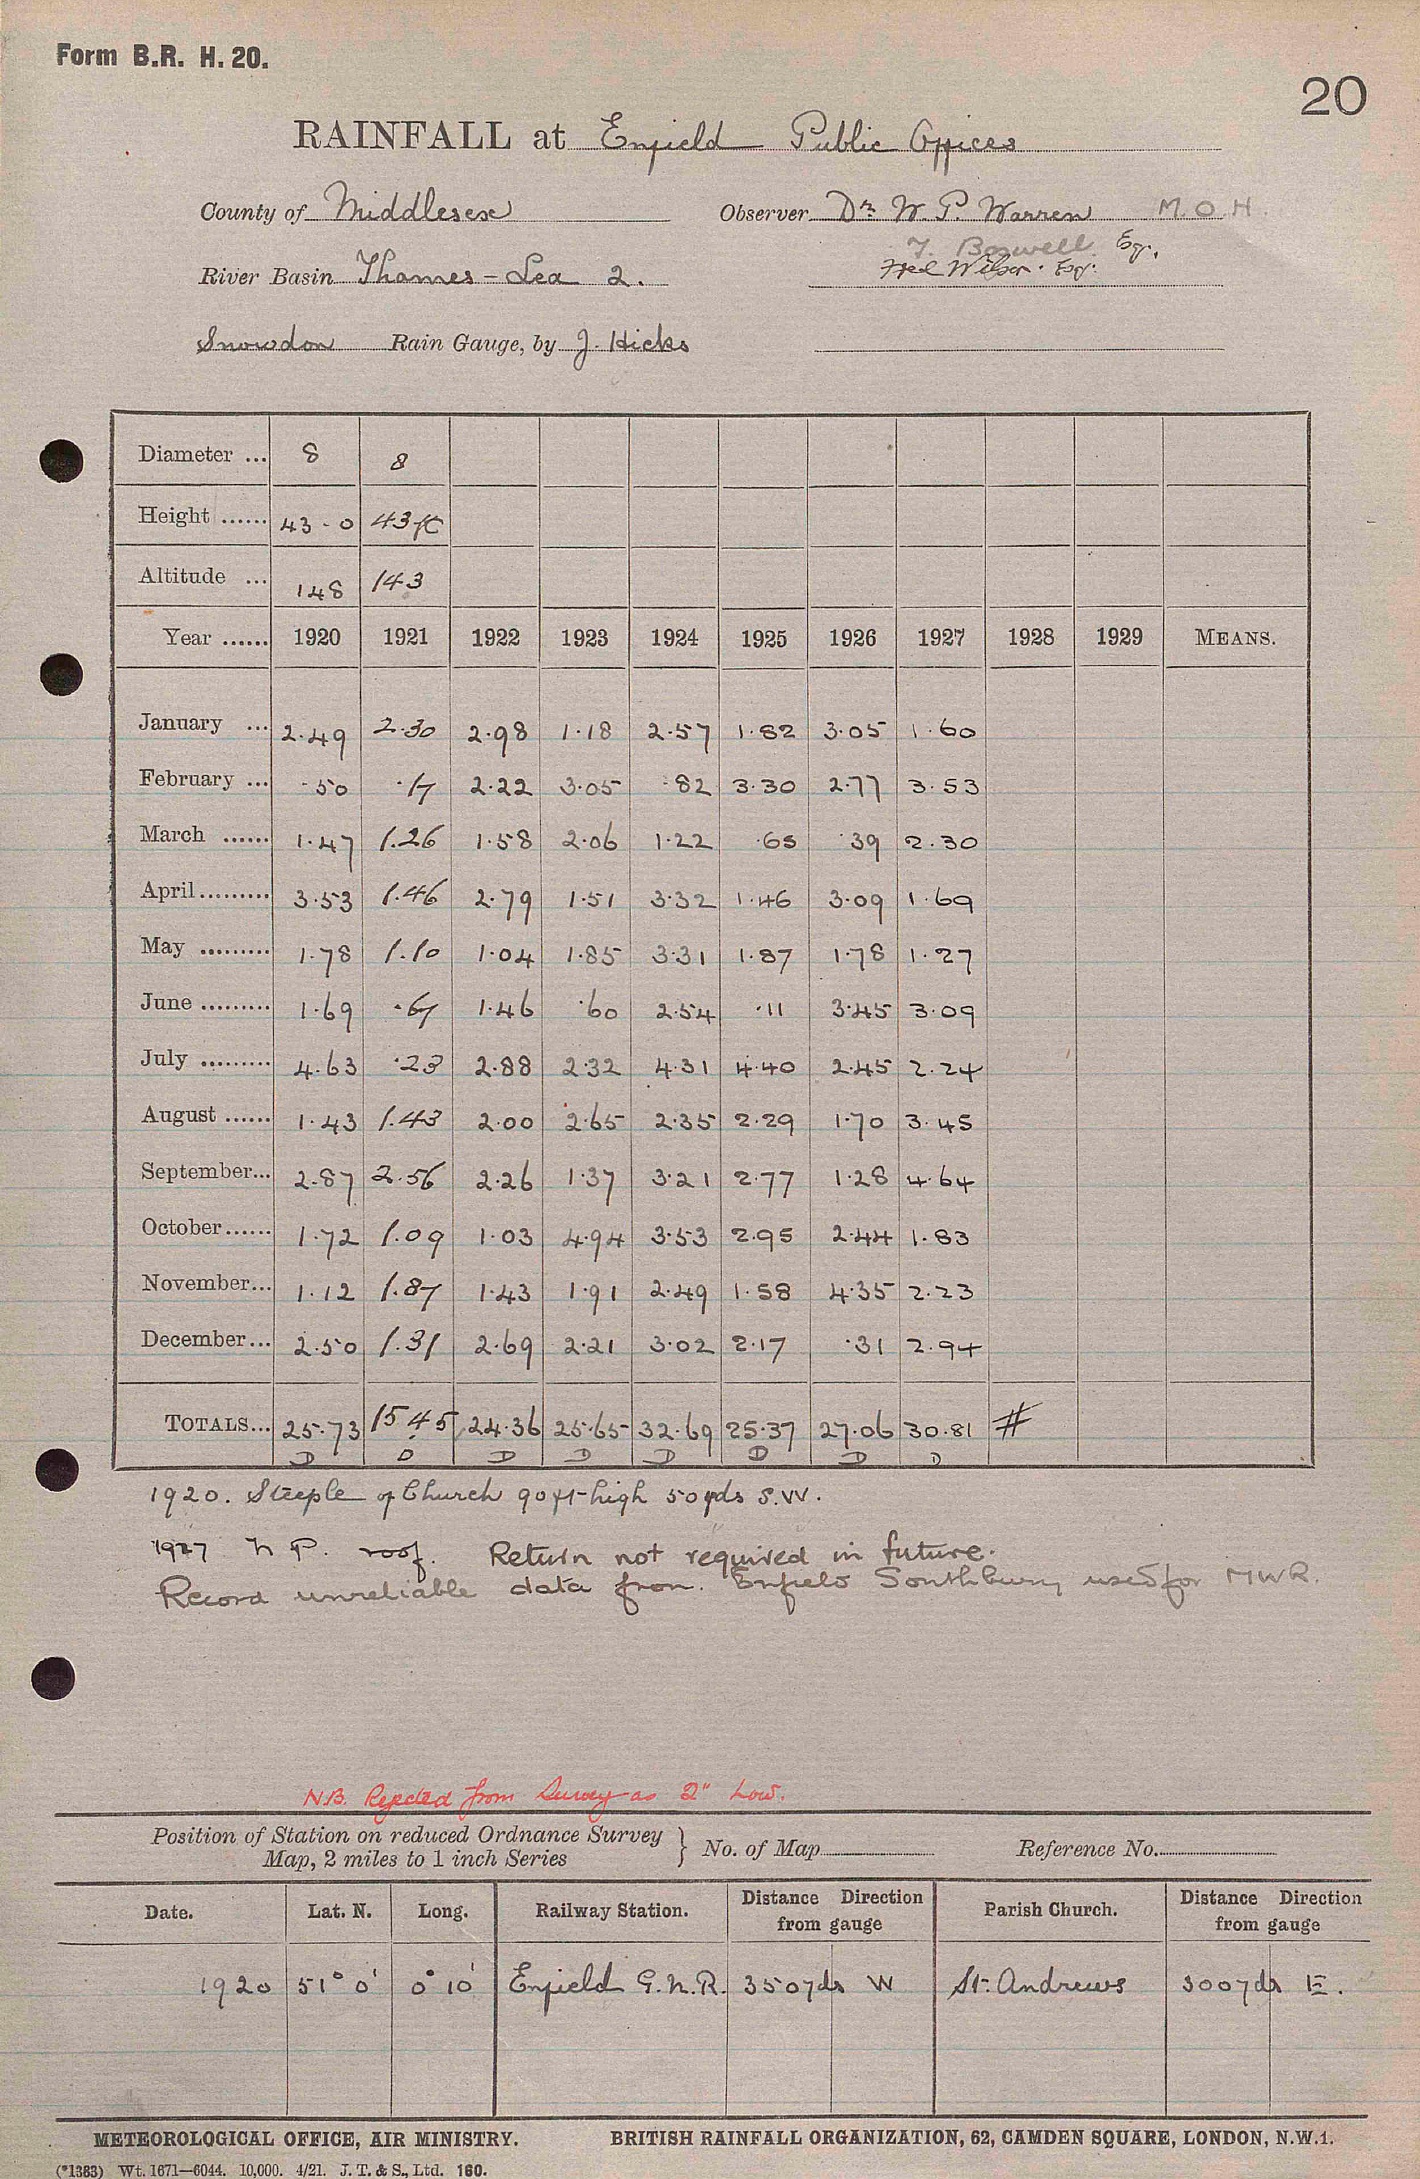 Form B.R. H. 20.
20
RAINFALL at Enfield Public Offices
County of Middlesex Observer Dr. W. P. Warren M.O.H.
T. Boswell Esq.
River Basin Thames - Lea 2. Fred Wilson. Esq.
Snowdon Rain Gauge, by J. Hicks
Diameter ... 8 8
Height ...... 43-0 43 ft
Altitude ... 148 143
Year ...... 1920 1921 1922 1923 1924 1925 1926 1927 1928 1929 MEANS.
January ... 2.49 2.30 2.98 1.18 2.57 1.82 3.05 1.60
February ... .50 .17 2.22 3.05 .82 3.30 2.77 3.53
March ...... 1.47 1.26 1.58 2.06 1.22 .65 .39 2.30
April ......... 3.53 1.46 2.79 1.51 3.32 1.46 3.09 1.69
May ......... 1.78 1.10 1.04 1.85 3.31 1.87 1.78 1.27
June ......... 1.69 .67 1.46 .60 2.54 .11 3.45 3.09
July ......... 4.63 .23 2.88 2.32 4.31 4.40 2.45 2.24
August ...... 1.43 1.43 2.00 2.65 2.35 2.29 1.70 3.45
September... 2.87 2.56 2.26 1.37 3.21 2.77 1.28 4.64
October...... 1.72 1.09 1.03 4.94 3.53 2.95 2.44 1.83
November... 1.12 1.87 1.43 1.91 2.49 1.58 4.35 2.23
December... 2.50 1.31 2.69 2.21 3.02 2.17 .31 2.94
TOTALS... 25.73 15.45 24.36 25.65 32.69 25.37 27.06 30.81 #
D D D D D D D D
1920. Steeple of Church 90 ft high 50 yds S.W.
1927 N P. roof. Return not required in future.
Record unreliable data from. Enfield Southbury used for MWR.
N.B. Rejected from Survey as 2" Low.
Position of Station on reduced Ordnance Survey
Map, 2 miles to 1 inch Series } No. of Map Reference No.
Date. Lat. N. Long. Railway Station. Distance Direction from gauge Parish Church. Distance Direction from gauge
1920 51° 0' 0° 10' Enfield G.N.R. 350 yds W St. Andrews 300 yds E.
METEOROLOGICAL OFFICE, AIR MINISTRY. BRITISH RAINFALL ORGANIZATION, 62, CAMDEN SQUARE, LONDON, N.W.1.
(*1383) Wt. 1671—6044. 10,000. 4/21. J. T. & S., Ltd. 160.